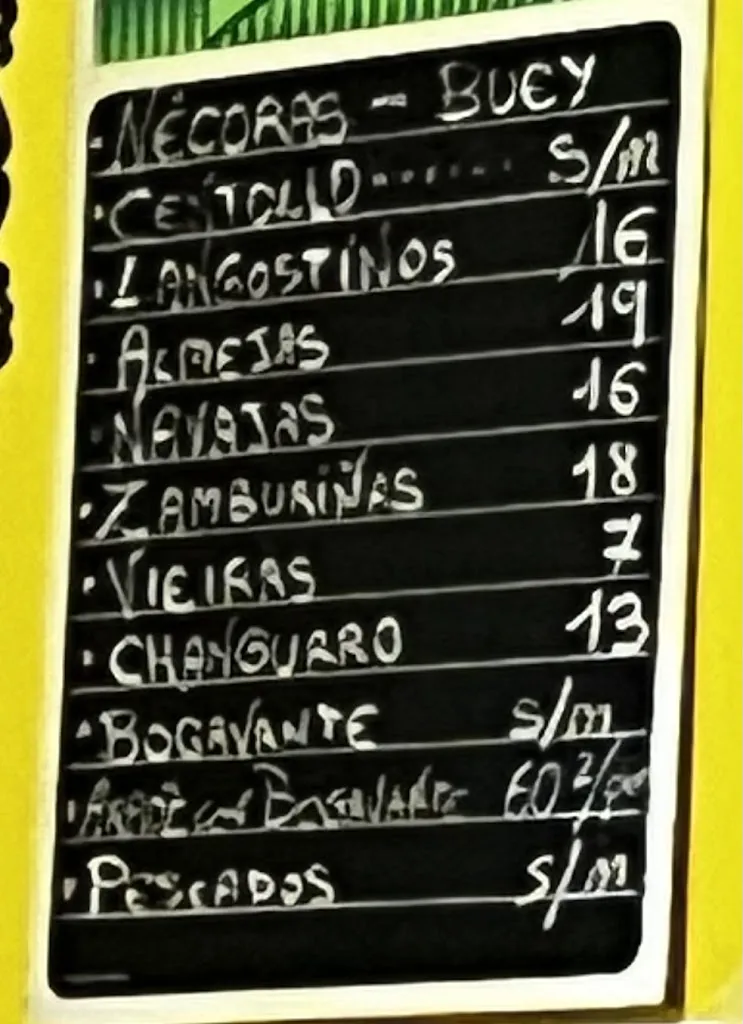 · NÉCORAS - BUEY
· CENTOLLO ........ S/m
· LANGOSTINOS 16
· ALMEJAS 19
· NAVAJAS 16
· ZAMBURIÑAS 18
· VIEIRAS 7
· CHANGURRO 13
· BOGAVANTE S/m
· ARROZ con BOGAVANTE 60 2/pe
· PESCADOS S/m